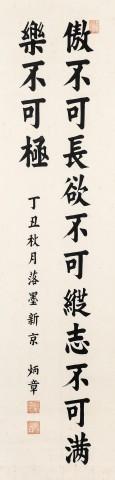 傲不可長欲不可縱志不可满
樂不可極
丁丑秋月落墨新京 炳章